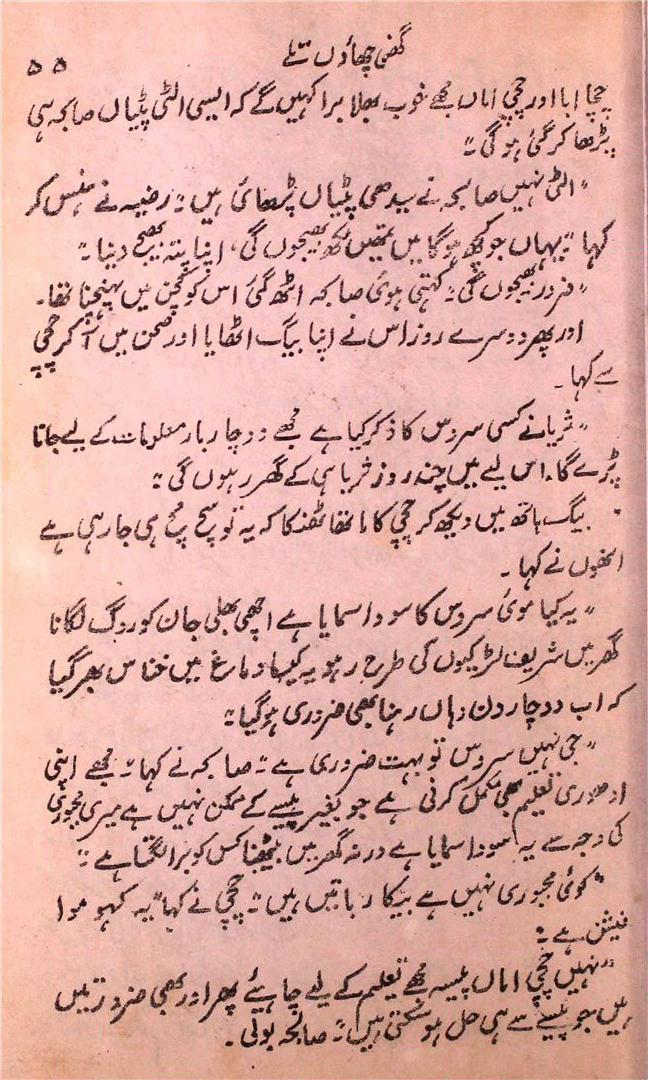 گھنی چھاؤں تلے
۵۵
چچا ابا اور چچی اماں مجھے خوب بھلا برا کہیں گے کہ ایسی الٹی پٹیاں صالحہ ہی
پڑھا کر گئی ہو گی۔"
"الٹی نہیں صالحہ نے سیدھی پٹیاں پڑھائی ہیں۔" رضیہ نے ہنس کر
کہا "یہاں جو کچھ ہوگا میں تمھیں لکھ بھیجوں گی، اپنا پتہ بھیج دینا۔"
"ضرور بھیجوں گی۔" کہتی ہوئی صالحہ اٹھ گئی اس کو کچن میں پہنچنا تھا۔
اور پھر دوسرے روز اس نے اپنا بیگ اٹھایا اور صحن میں آ کر چچی
سے کہا۔
"ثریا نے کسی سروس کا ذکر کیا ہے مجھے دو چار بار معلومات کے لیے جانا
پڑے گا۔ اس لیے میں چند روز ثریا ہی کے گھر رہوں گی۔"
بیگ ہاتھ میں دیکھ کر چچی کا ماتھا ٹھنکا کہ یہ تو سچ مچ ہی جا رہی ہے
انھوں نے کہا۔
"یہ کیا موئی سروس کا سودا سمایا ہے اچھی بھلی جان کو روگ لگانا
گھر میں شریف لڑکیوں کی طرح رہو یہ کیسا دماغ میں خناس بھر گیا
کہ اب دو چار دن وہاں رہنا بھی ضروری ہو گیا۔"
"جی نہیں سروس تو بہت ضروری ہے۔" صالحہ نے کہا۔ "مجھے اپنی
ادھوری تعلیم بھی مکمل کرنی ہے جو بغیر پیسے کے ممکن نہیں ہے میری مجبوری
کی وجہ سے یہ سودا سمایا ہے ورنہ گھر میں بیٹھنا کس کو برا لگتا ہے۔"
"کوئی مجبوری نہیں ہے بیکار باتیں ہیں۔" چچی نے کہا "یہ کہو موا
فیشن ہے۔"
"نہیں چچی اماں پیسہ مجھے تعلیم کے لیے چاہیئے پھر اور بھی ضرورتیں
ہیں جو پیسے سے ہی حل ہو سکتی ہیں۔" صالحہ بولی۔